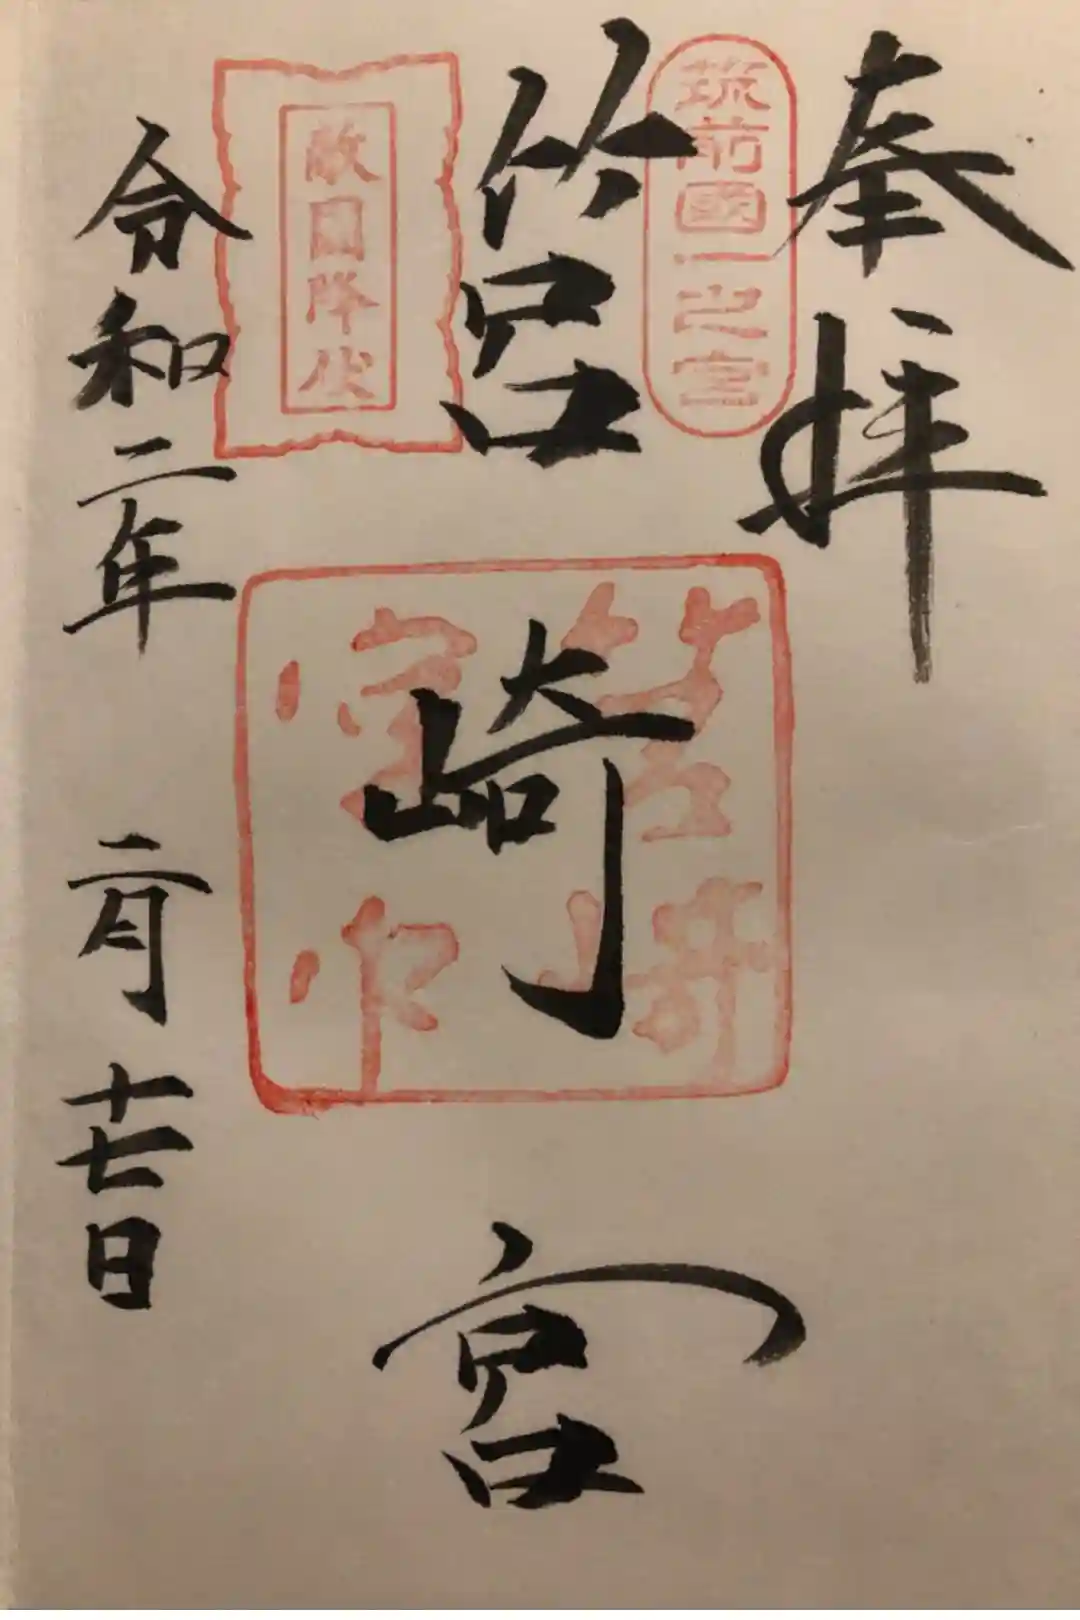 奉拝
筑前國一之宮
筥崎宮
敵国降伏
筥崎宮印
令和二年 二月 十七日